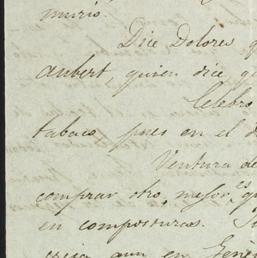 murió.
Dice Dolores q
Aubert, quien dice q
Celebro
tabaco, pues en el d
Ventura de
comprar otro mejor, es q
en composturas.
aun en